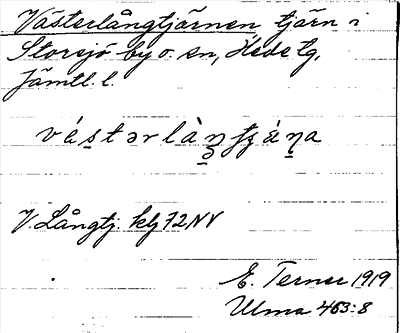 Västerlångtjärnen tjärn i
Storsjö by o. sn, Hede tg,
Jämtl. l.
V. Långtj. kbl 72NV
E. Terner 1919
Ulma 463:8